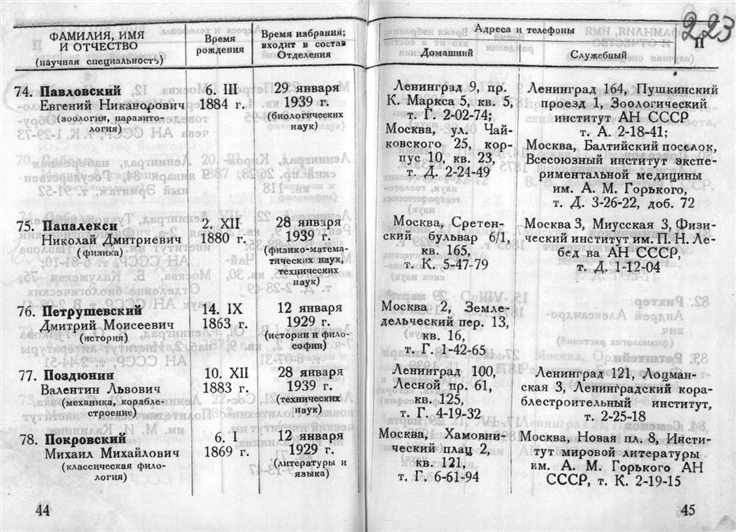 ФАМИЛИЯ, ИМЯ
И ОТЧЕСТВО
(научная специальность)
Время
рождения
Время избрания;
входит в состав
Отделения
74. Павловский
Евгений Никанорович
(зоология, паразито-
логия)
6. III
1884 г.
29 января
1939 г.
(биологических
наук)
75. Папалекси
Николай Дмитриевич
(физика)
2. XII
1880 г.
28 января
1939 г.
(физико-матема-
тических наук,
технических
наук)
76. Петрушевский
Дмитрий Моисеевич
(история)
14. IX
1863 г.
12 января
1929 г.
(истории и фило-
софии)
77. Поздюнин
Валентин Львович
(механика, корабле-
строение)
10. XII
1883 г.
28 января
1939 г.
(технических
наук)
78. Покровский
Михаил Михайлович
(классическая фило-
логия)
6. I
1869 г.
12 января
1929 г.
(литературы и
языка)
44
223
Адреса и телефоны
Домашний
Служебный
П
Ленинград 9, пр.
К. Маркса 5, кв. 5,
т. Г. 2-02-74;
Москва, ул. Чай-
ковского 25, кор-
пус 10, кв. 23,
т. Д. 2-24-49
Ленинград 164, Пушкинский
проезд 1, Зоологический
институт АН СССР
т. А. 2-18-41;
Москва, Балтийский поселок,
Всесоюзный институт экспе-
риментальной медицины
им. А. М. Горького,
т. Д. 3-26-22, доб. 72
Москва, Сретен-
ский бульвар 6/1,
кв. 165,
т. К. 5-47-79
Москва 3, Миусская 3, Физи-
ческий институт им. П. Н. Ле-
бед ва АН СССР,
т. Д. 1-12-04
Москва 2, Земле-
дельческий пер. 13,
кв. 16,
т. Г. 1-42-65
Ленинград 100,
Лесной пр. 61,
кв. 125,
т. Г. 4-19-32
Ленинград 121, Лоцман-
ская 3, Ленинградский кора-
блестроительный институт,
т. 2-25-18
Москва, Хамовни-
ческий плац 2,
кв. 121,
т. Г. 6-61-94
Москва, Новая пл. 8, Инсти-
тут мировой литературы
им. А. М. Горького АН
СССР, т. К. 2-19-15
45